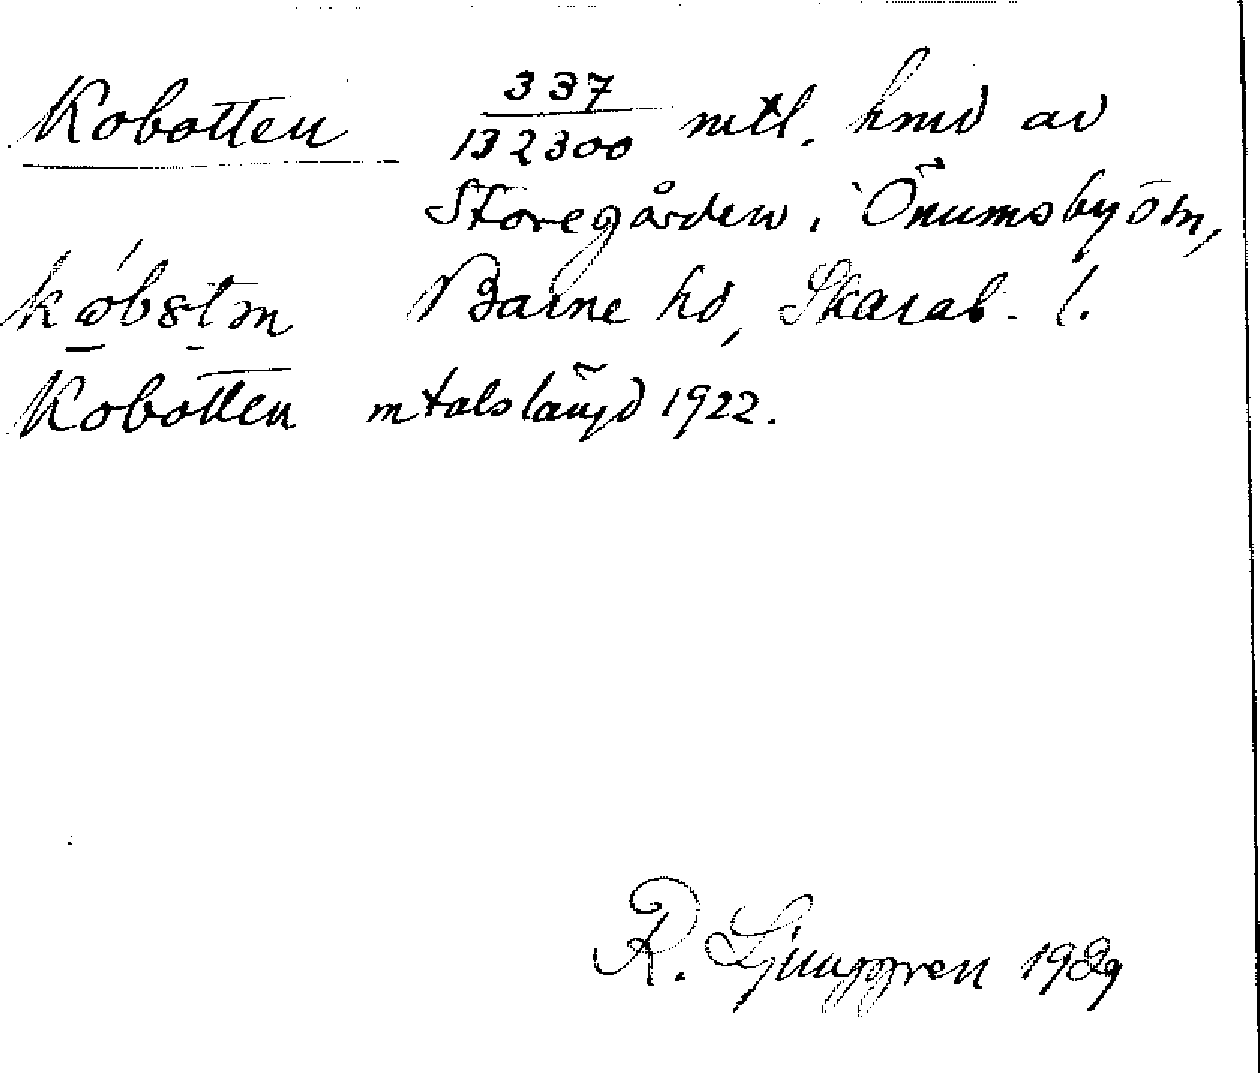 Kobotten 337/132300 mtl. hmd av
Storegården i Önums by ö m,
Barne hd, Skarab. l.
Kobotten mtalslängd 1922.
R. Ljunggren 1929